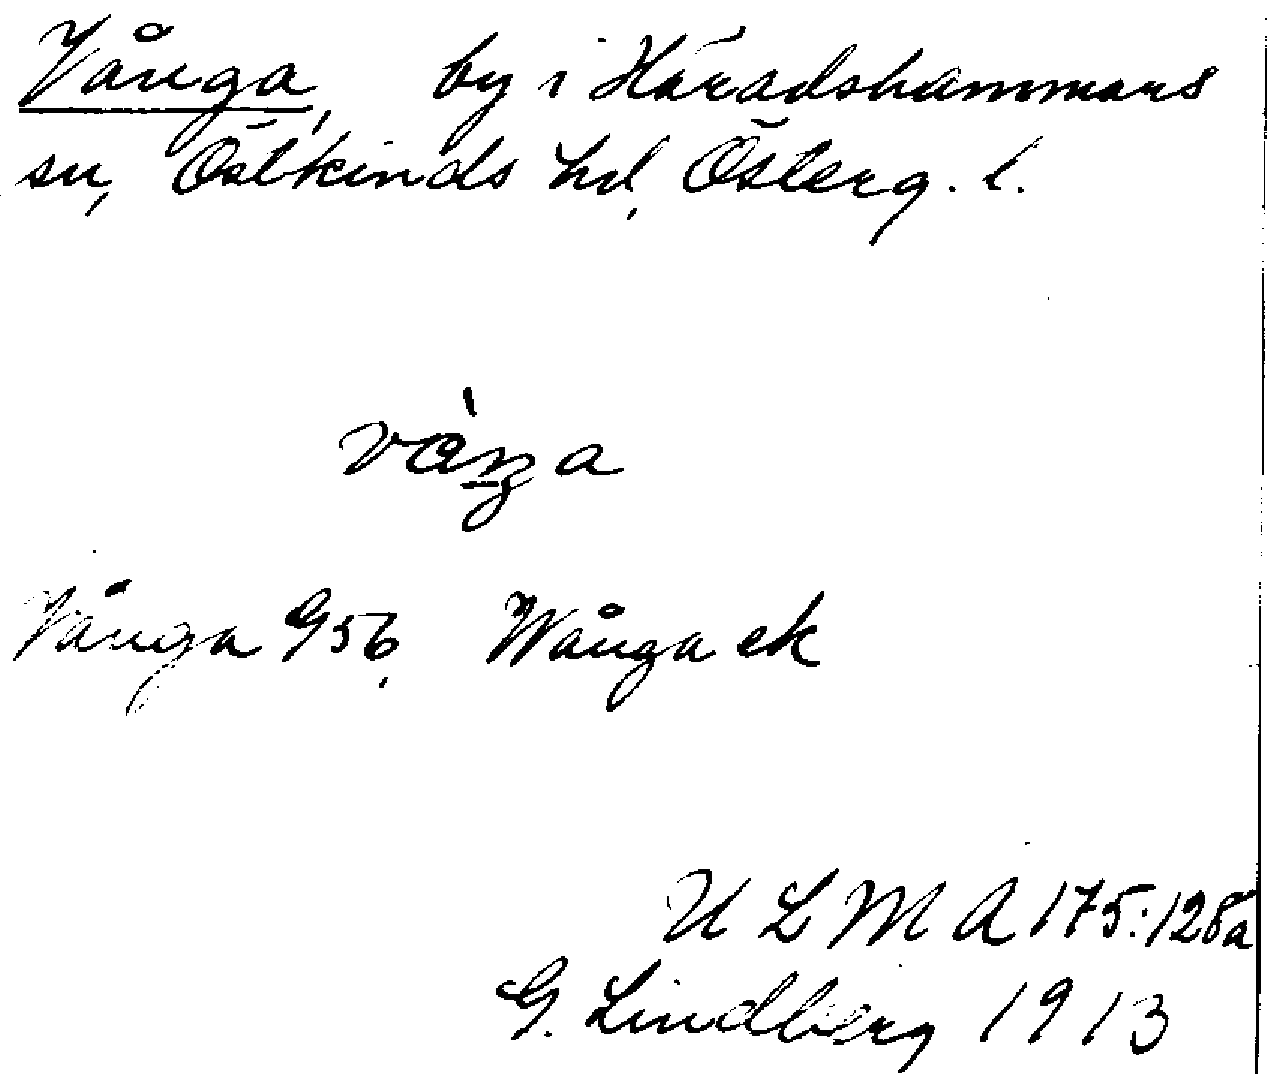 Vånga, by i Häradshammars
sn, Östkinds hd, Österg. l.
Vånga G56, Wånga ek
ULMA 175:128a
G. Lindberg 1913